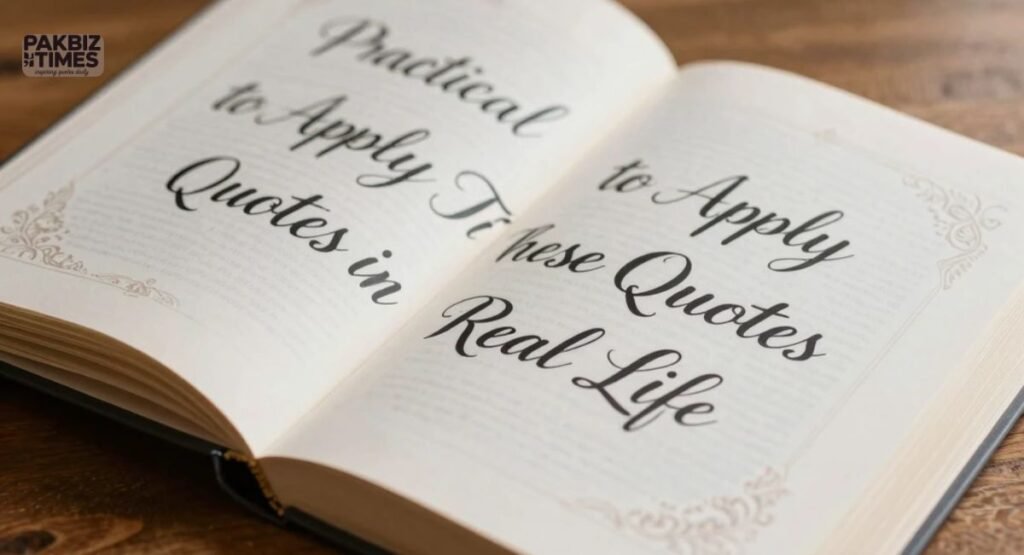 PAKBIZ
TIMES
inspiring quotes daily
Practical
to Apply Ti
Quotes in
to Apply
hese Quotes
Real Life